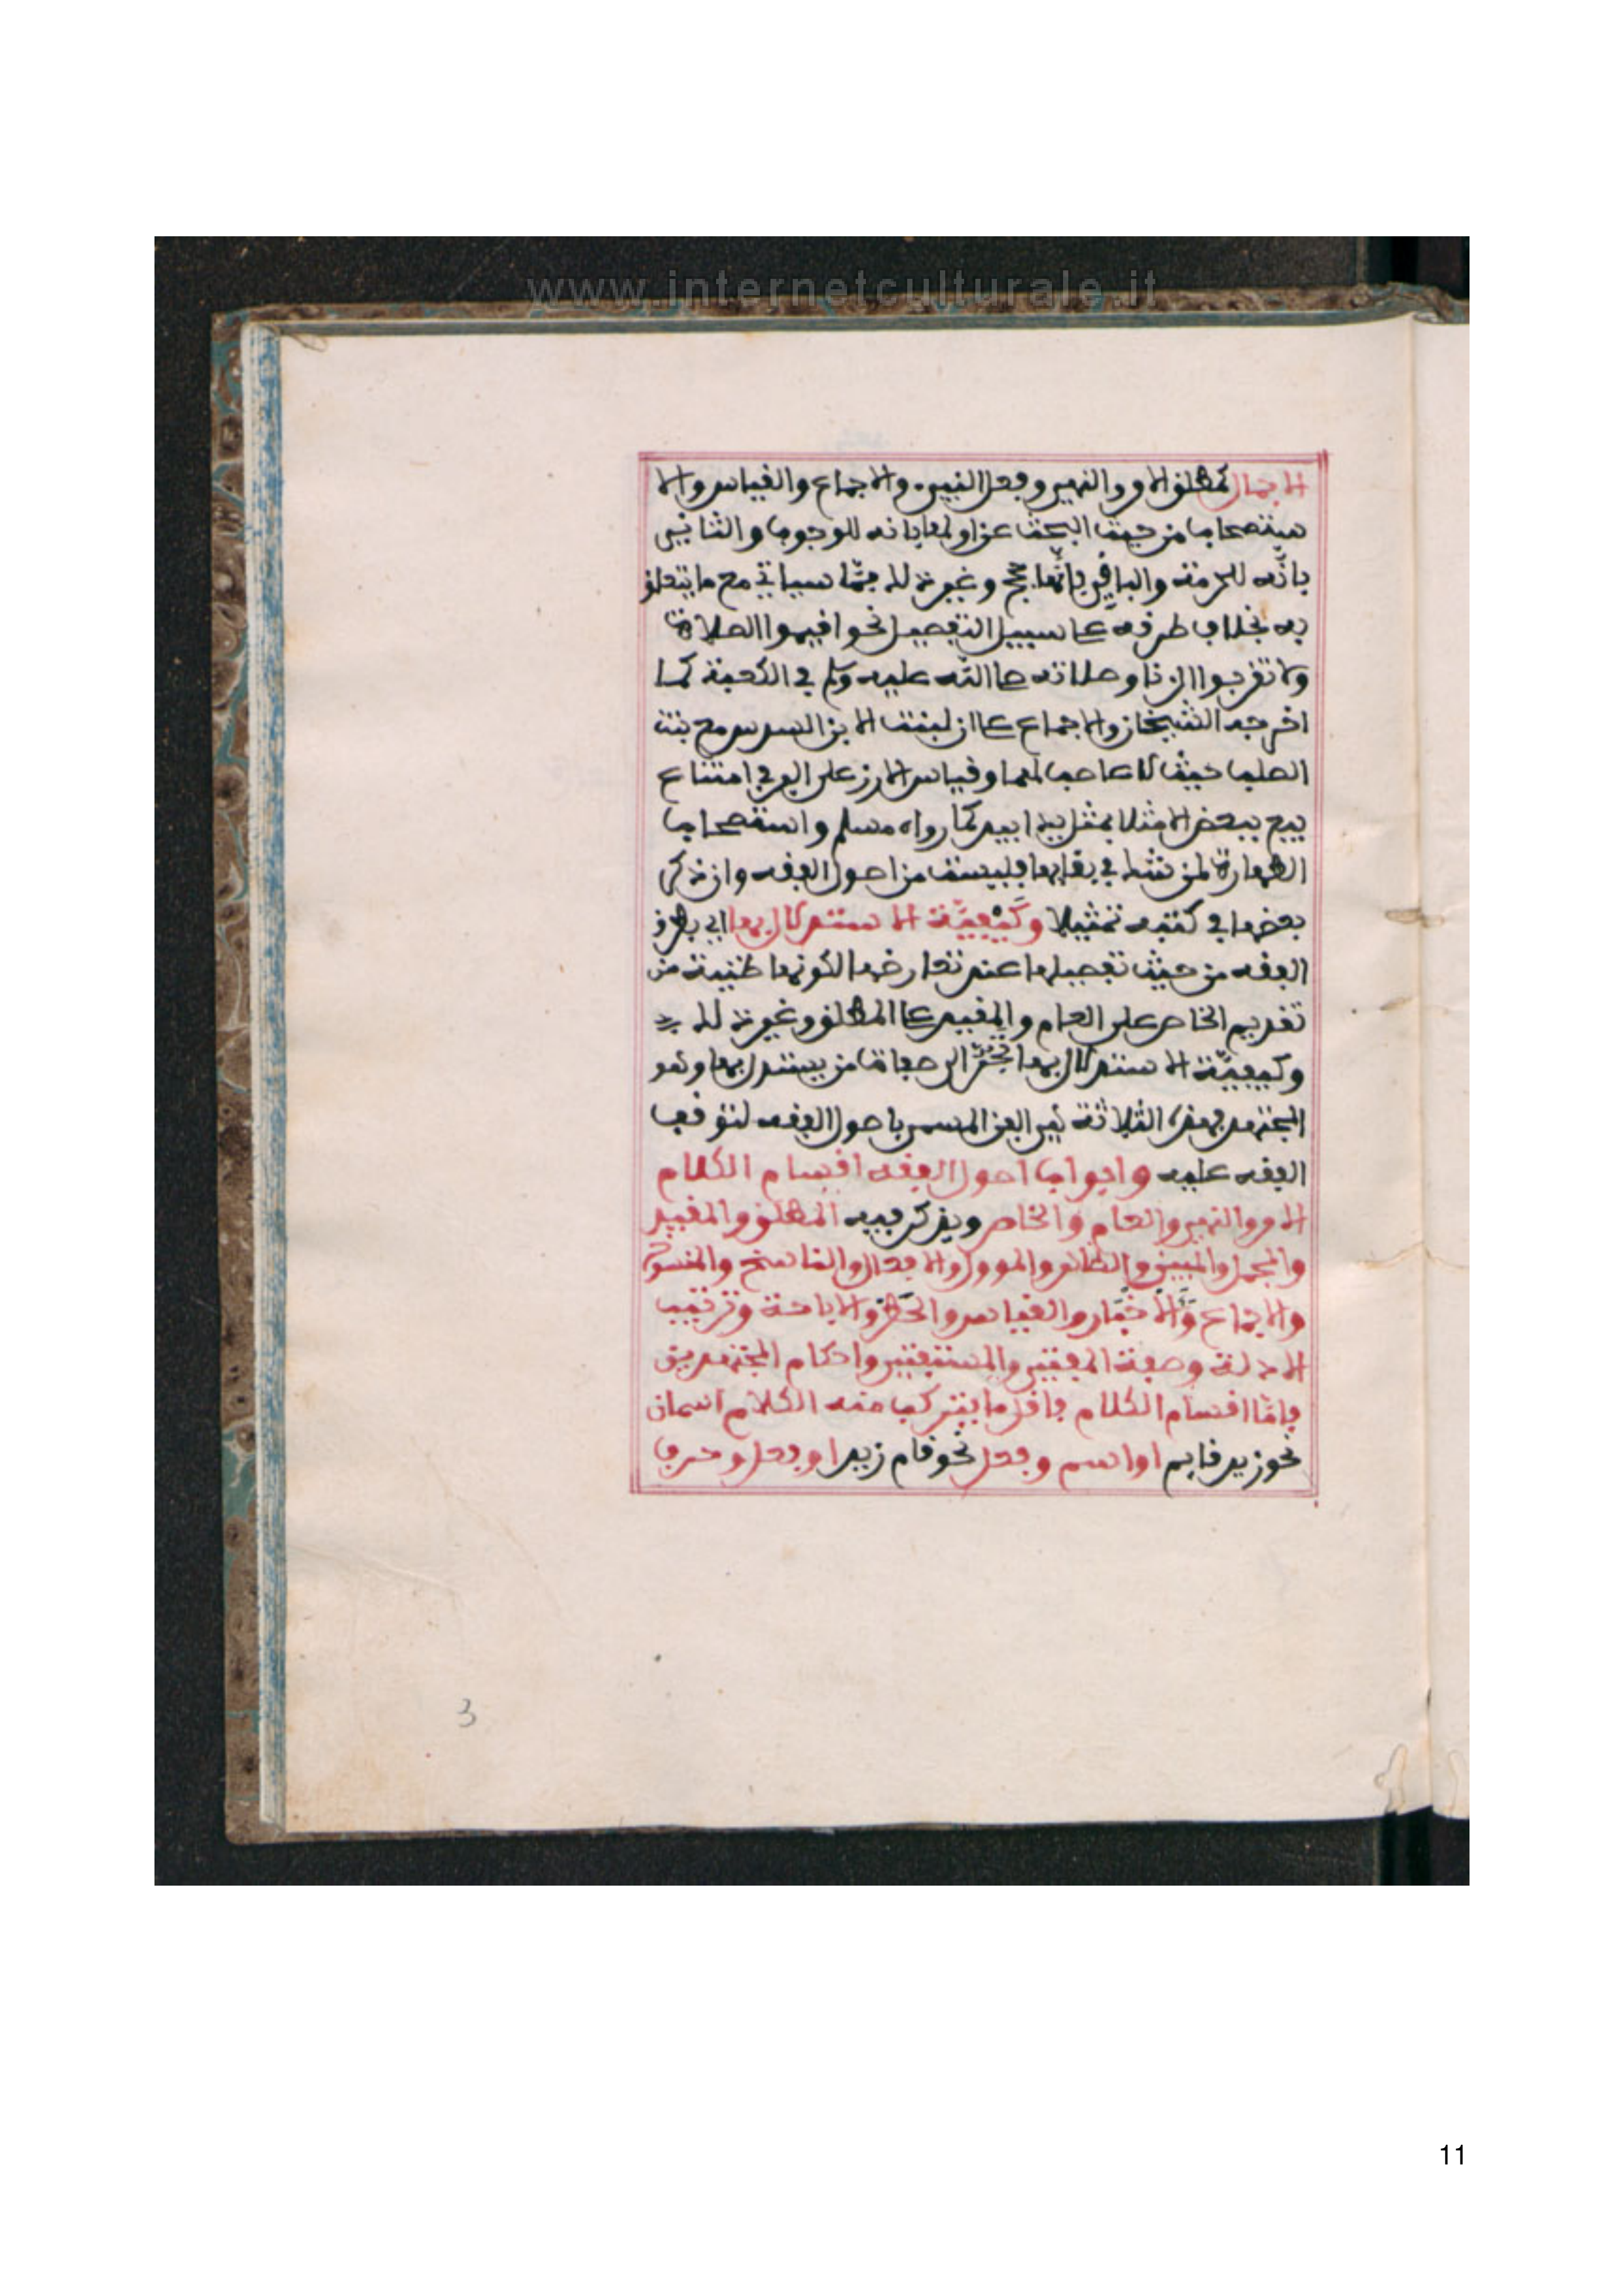 www.internetculturale.it
الاجمال كمطلق الامر والنهي وفعل النبيء والاجماع والقياس والا
ستصحاب من حيث البحث عن اولها بانه للوجوب والثاني
بانّه للحرمة والباقي بانّها حجج وغير ذلك ممّا سياتي مع ما يتعلق
به بخلاف طرقه على سبيل التفصيل نحو اقيموا الصلاة
ولا تقربوا الزنا وصلاته صلى الله عليه وسلم في الكعبة كما
اخرجه الشيخان والاجماع على ان لبنت الابن السدس مع بنت
الصلب حيث لا عاصب لهما وقياس الارز على البر في امتناع
بيع ببعض الا مثلا بمثل يدا بيد كما رواه مسلم واستصحاب
الطهارة لمن شك في بقايها فليست من اصول الفقه وان ذكر
بعضها في كتبه تمثيلا وكيفيّة الاستدلال بها اي بطرق
الفقه من حيث تفصيلها عند تعارضها لكونها ظنية من
تقديم الخاص على العام والمقيد على المطلق وغير ذلك
وكيفيّة الاستدلال بها تجر الى صفات من يستدل بها وهو
المجتهد فهذه الثلاثة هي الفن المسمى باصول الفقه لتوقف
الفقه عليه وابواب اصول الفقه اقسام الكلام
الامر والنهي والعام والخاص ويذكر فيه المطلق والمقيد
والمجمل والمبين والظاهر والموول والافعال والناسخ والمنسوخ
والاجماع والاخبار والقياس والحظر والاباحة وترتيب
الادلة وصفة المفتي والمستفتي واحكام المجتهدين
فامّا اقسام الكلام فاقل ما يتركب منه الكلام اسمان
نحو زيد قايم او اسم وفعل نحو قام زيد او فعل وحرف
3
11